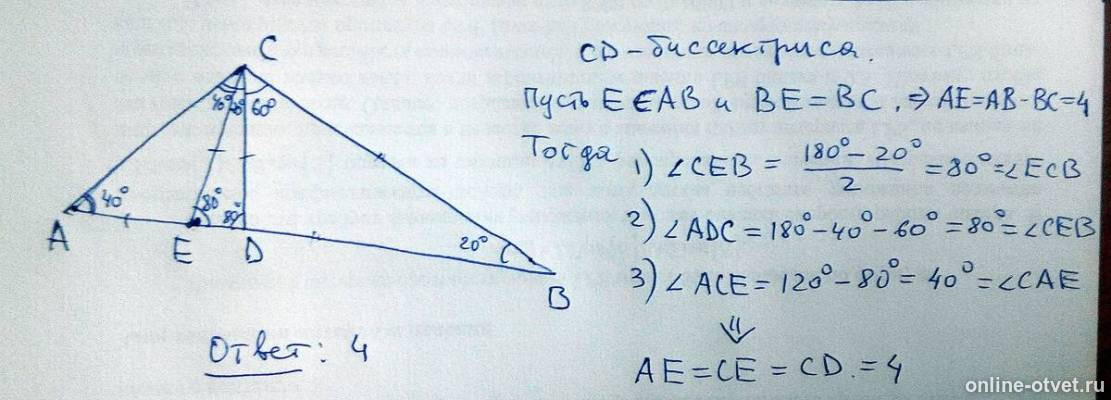 C
40° 20° 60°
CD - биссектриса.
Пусть E ∈ AB и BE = BC, ⇒ AE = AB - BC = 4
Тогда
1) ∠CEB = (180° - 20°)/2 = 80° = ∠ECB
2) ∠ADC = 180° - 40° - 60° = 80° = ∠CEB
3) ∠ACE = 120° - 80° = 40° = ∠CAE
⇓
AE = CE = CD = 4
40° 80° 80° 20°
A E D B
Ответ: 4
online-otvet.ru